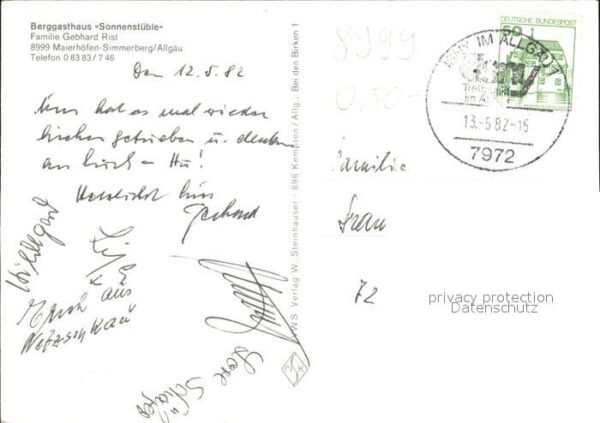 Berggasthaus »Sonnenstüble«
Familie Gebhard Rist
8999 Maierhöfen-Simmerberg/Allgäu
Telefon 0 83 83 / 7 46
Den 12.5.82
Uns hat es mal wieder
hierher getrieben u. denken
an Euch -
Herzlichst Eure
Gerhard
Hildegard
Erich aus
Netzschkau
WS Verlag W. Steinhauser · 896 Kempten/Allg., Bei den Birken 1
8999
0,50-
DEUTSCHE BUNDESPOST
50
IM ALLGÄU 1
13.-5.82-15
7972
Familie
Frau
72
privacy protection
Datenschutz